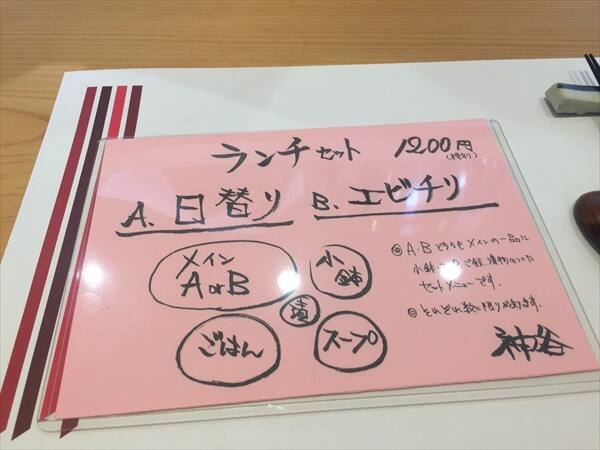 ランチセット 1200円
(税別)
A. 日替り B. エビチリ
メイン
A or B
小鉢
漬
ごはん
スープ
◎ A・Bどちらもメインの一品に
小鉢・スープ・ご飯、漬物のついた
セットメニューです。
◎ それぞれ数に限りがあります。
神谷